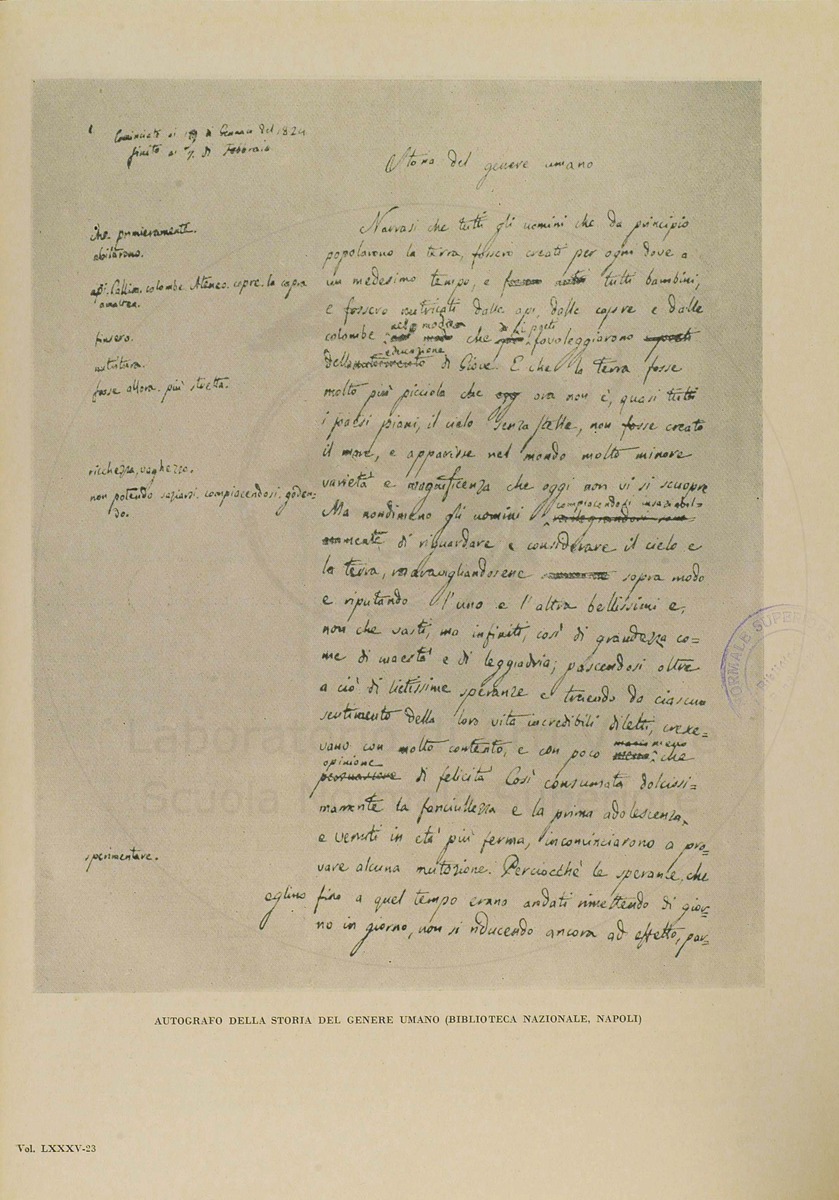 Cominciato ai 19 di Gennaio del 1824
finito ai 7. di Febbraio.
Storia del genere umano
che primieramente.
abitarono.
Narrasi che tutti gli uomini che da principio
popolarono la terra, fossero creati per ogni dove a
un medesimo tempo, e tutti bambini,
api. Callim. colombe. Ateneo. capre. la capra
amaltea.
e fossero nutricati dalle api, dalle capre e dalle
colombe nel modo che i poeti favoleggiarono
finsero.
dell' educazione di Giove. E che la terra fosse
nutritura.
fosse allora più stretta.
molto più picciola che ora non è, quasi tutti
i paesi piani, il cielo senza stelle, non fosse creato
il mare, e apparisse nel mondo molto minore
ricchezza, vaghezza.
varietà e magnificenza che oggi non vi si scuopre
non potendo saziarsi. compiacendosi. goden-
do.
Ma nondimeno gli uomini compiacendosi insaziabil=
mente di riguardare e considerare il cielo e
la terra, maravigliandosene sopra modo
e riputando l'uno e l'altra bellissimi e,
non che vasti, ma infiniti, così di grandezza co=
me di maestà e di leggiadria; pascendosi oltre
a ciò di lietissime speranze e traendo da ciascun
sentimento della loro vita incredibili diletti, cresce=
vano con molto contento, e con poco meno che
opinione di felicità. Così consumata dolcissi=
mamente la fanciullezza e la prima adolescenza,
e venuti in età più ferma, incominciarono a pro=
sperimentare.
vare alcuna mutazione. Perciocchè le speranze, che
eglino fino a quel tempo erano andati rimettendo di gior=
no in giorno, non si riducendo ancora ad effetto, par=
NORMALE SUPER
AUTOGRAFO DELLA STORIA DEL GENERE UMANO (BIBLIOTECA NAZIONALE, NAPOLI)
Vol. LXXXV-23